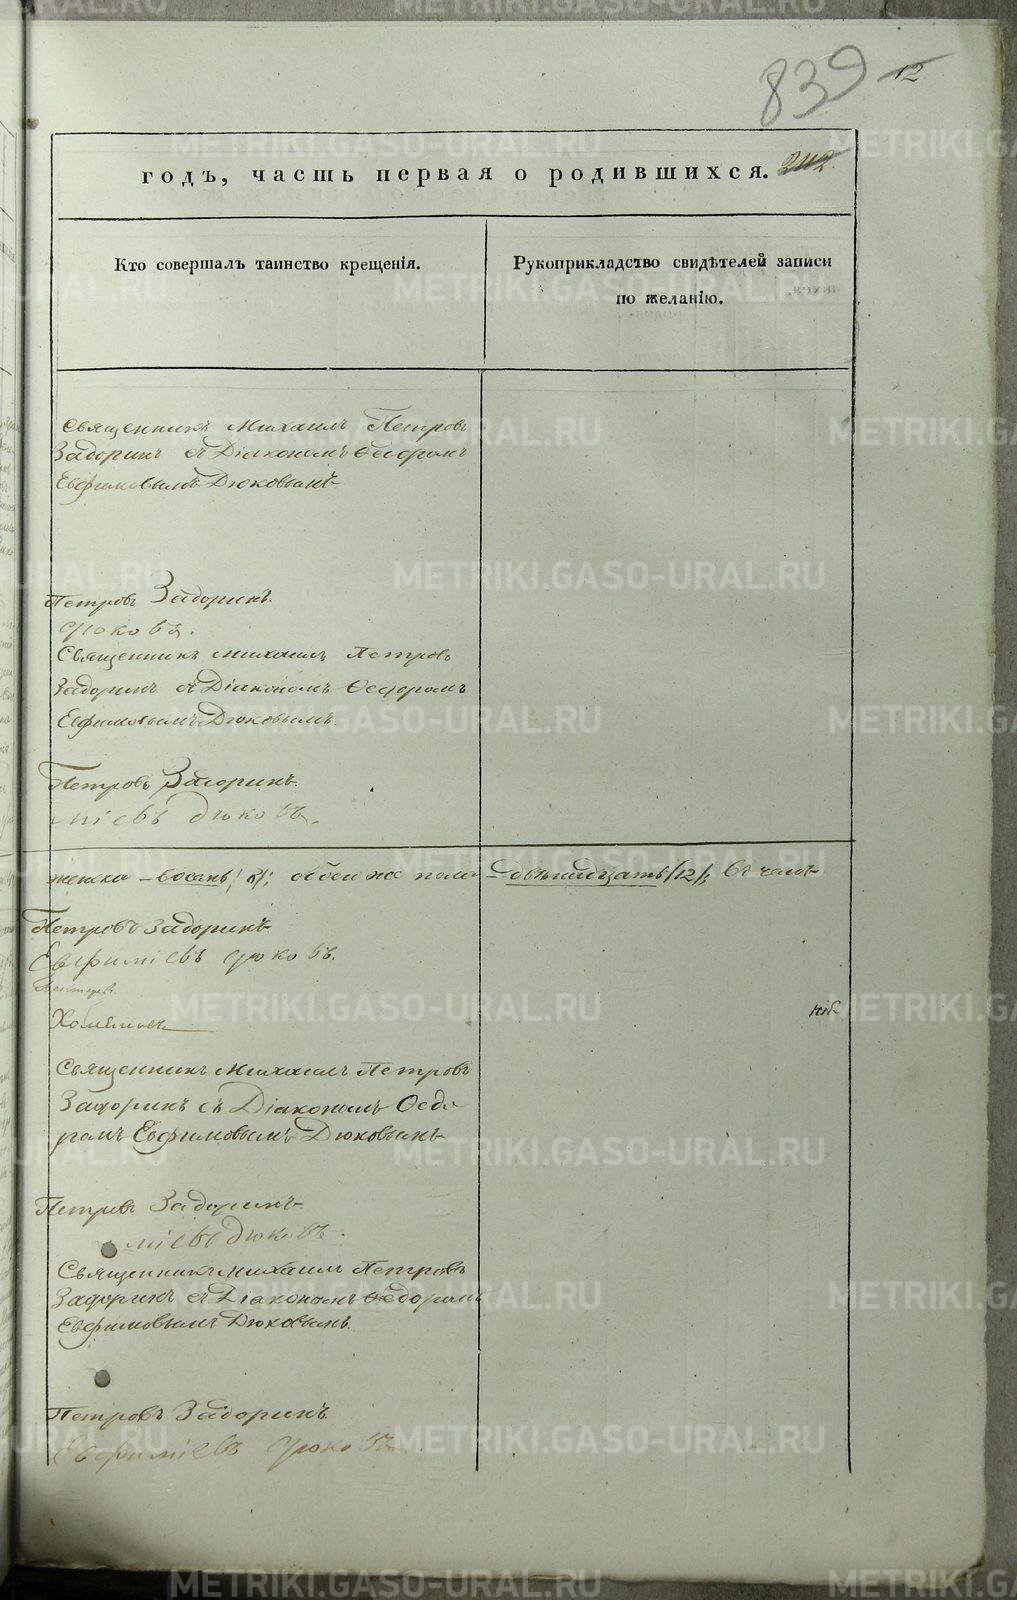 839 12
годъ, часть первая о родившихся. 242
Кто совершалъ таинство крещенія.
Рукоприкладство свидѣтелей записи
по желанію.
Священникъ Михаилъ Петровъ
Задоринъ съ Діакономъ Ѳедоромъ
Евфимовымъ Дюковымъ
Петровъ Задоринъ.
Дюковъ.
Священникъ Михаилъ Петровъ
Задоринъ съ Діакономъ Ѳедоромъ
Евфимовымъ Дюковымъ
Петровъ Задоринъ.
міевъ Дюковъ.
женска – восемь /8/; обоего же пола – двенадцать /12/; въ чемъ
Петровъ Задоринъ
Евфиміевъ Дюковъ.
Священникъ Михаилъ Петровъ
Задоринъ съ Діакономъ Ѳедо-
ромъ Евфимовымъ Дюковымъ
Петровъ Задоринъ
міевъ Дюковъ.
Священникъ Михаилъ Петровъ
Задоринъ съ Діакономъ Ѳедоромъ
Евфимовымъ Дюковымъ.
Петровъ Задоринъ
Евфиміевъ Дюковъ
METRIKI.GASO-URAL.RU